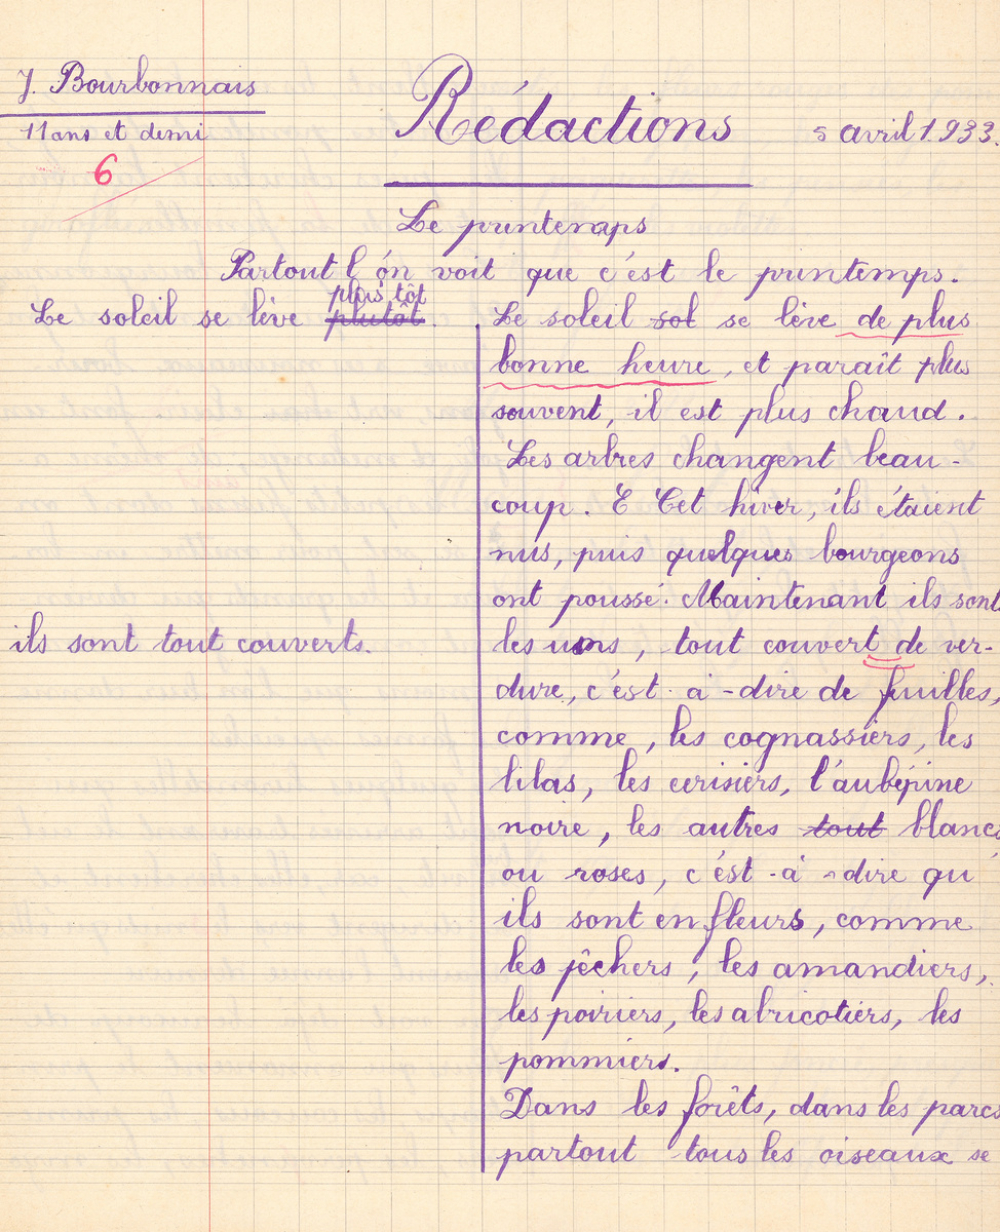 J. Bourbonnais
11 ans et demi
6
Rédactions
5 avril 1933.
Le printemps
Partout l'on voit que c'est le printemps.
Le soleil se lève plutôt.
plus tôt
Le soleil sol se lève de plus
bonne heure, et paraît plus
souvent, il est plus chaud.
Les arbres changent beau-
coup. E Cet hiver, ils étaient
nus, puis quelques bourgeons
ont poussé. Maintenant ils sont
ils sont tout couverts.
les uns, tout couvert de ver-
dure, c'est-à-dire de feuilles,
comme, les cognassiers, les
lilas, les cerisiers, l'aubépine
noire, les autres tout blancs
ou roses, c'est-à-dire qu
ils sont en fleurs, comme
les pêchers, les amandiers,
les poiriers, les abricotiers, les
pommiers.
Dans les forêts, dans les parcs
partout tous les oiseaux se